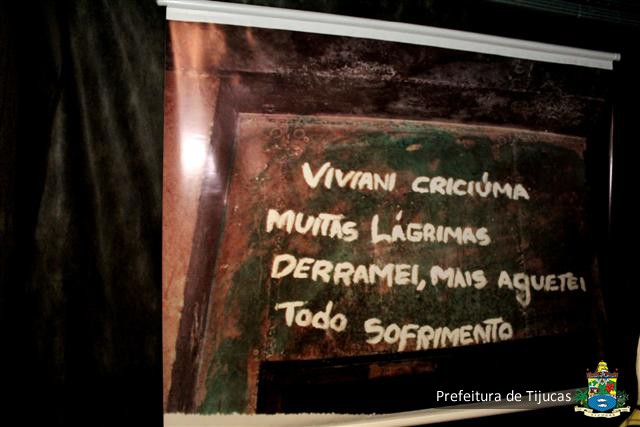 VIVIANI CRICIÚMA
MUITAS LÁGRIMAS
DERRAMEI, MAIS AGUETEI
TODO SOFRIMENTO
Prefeitura de Tijucas